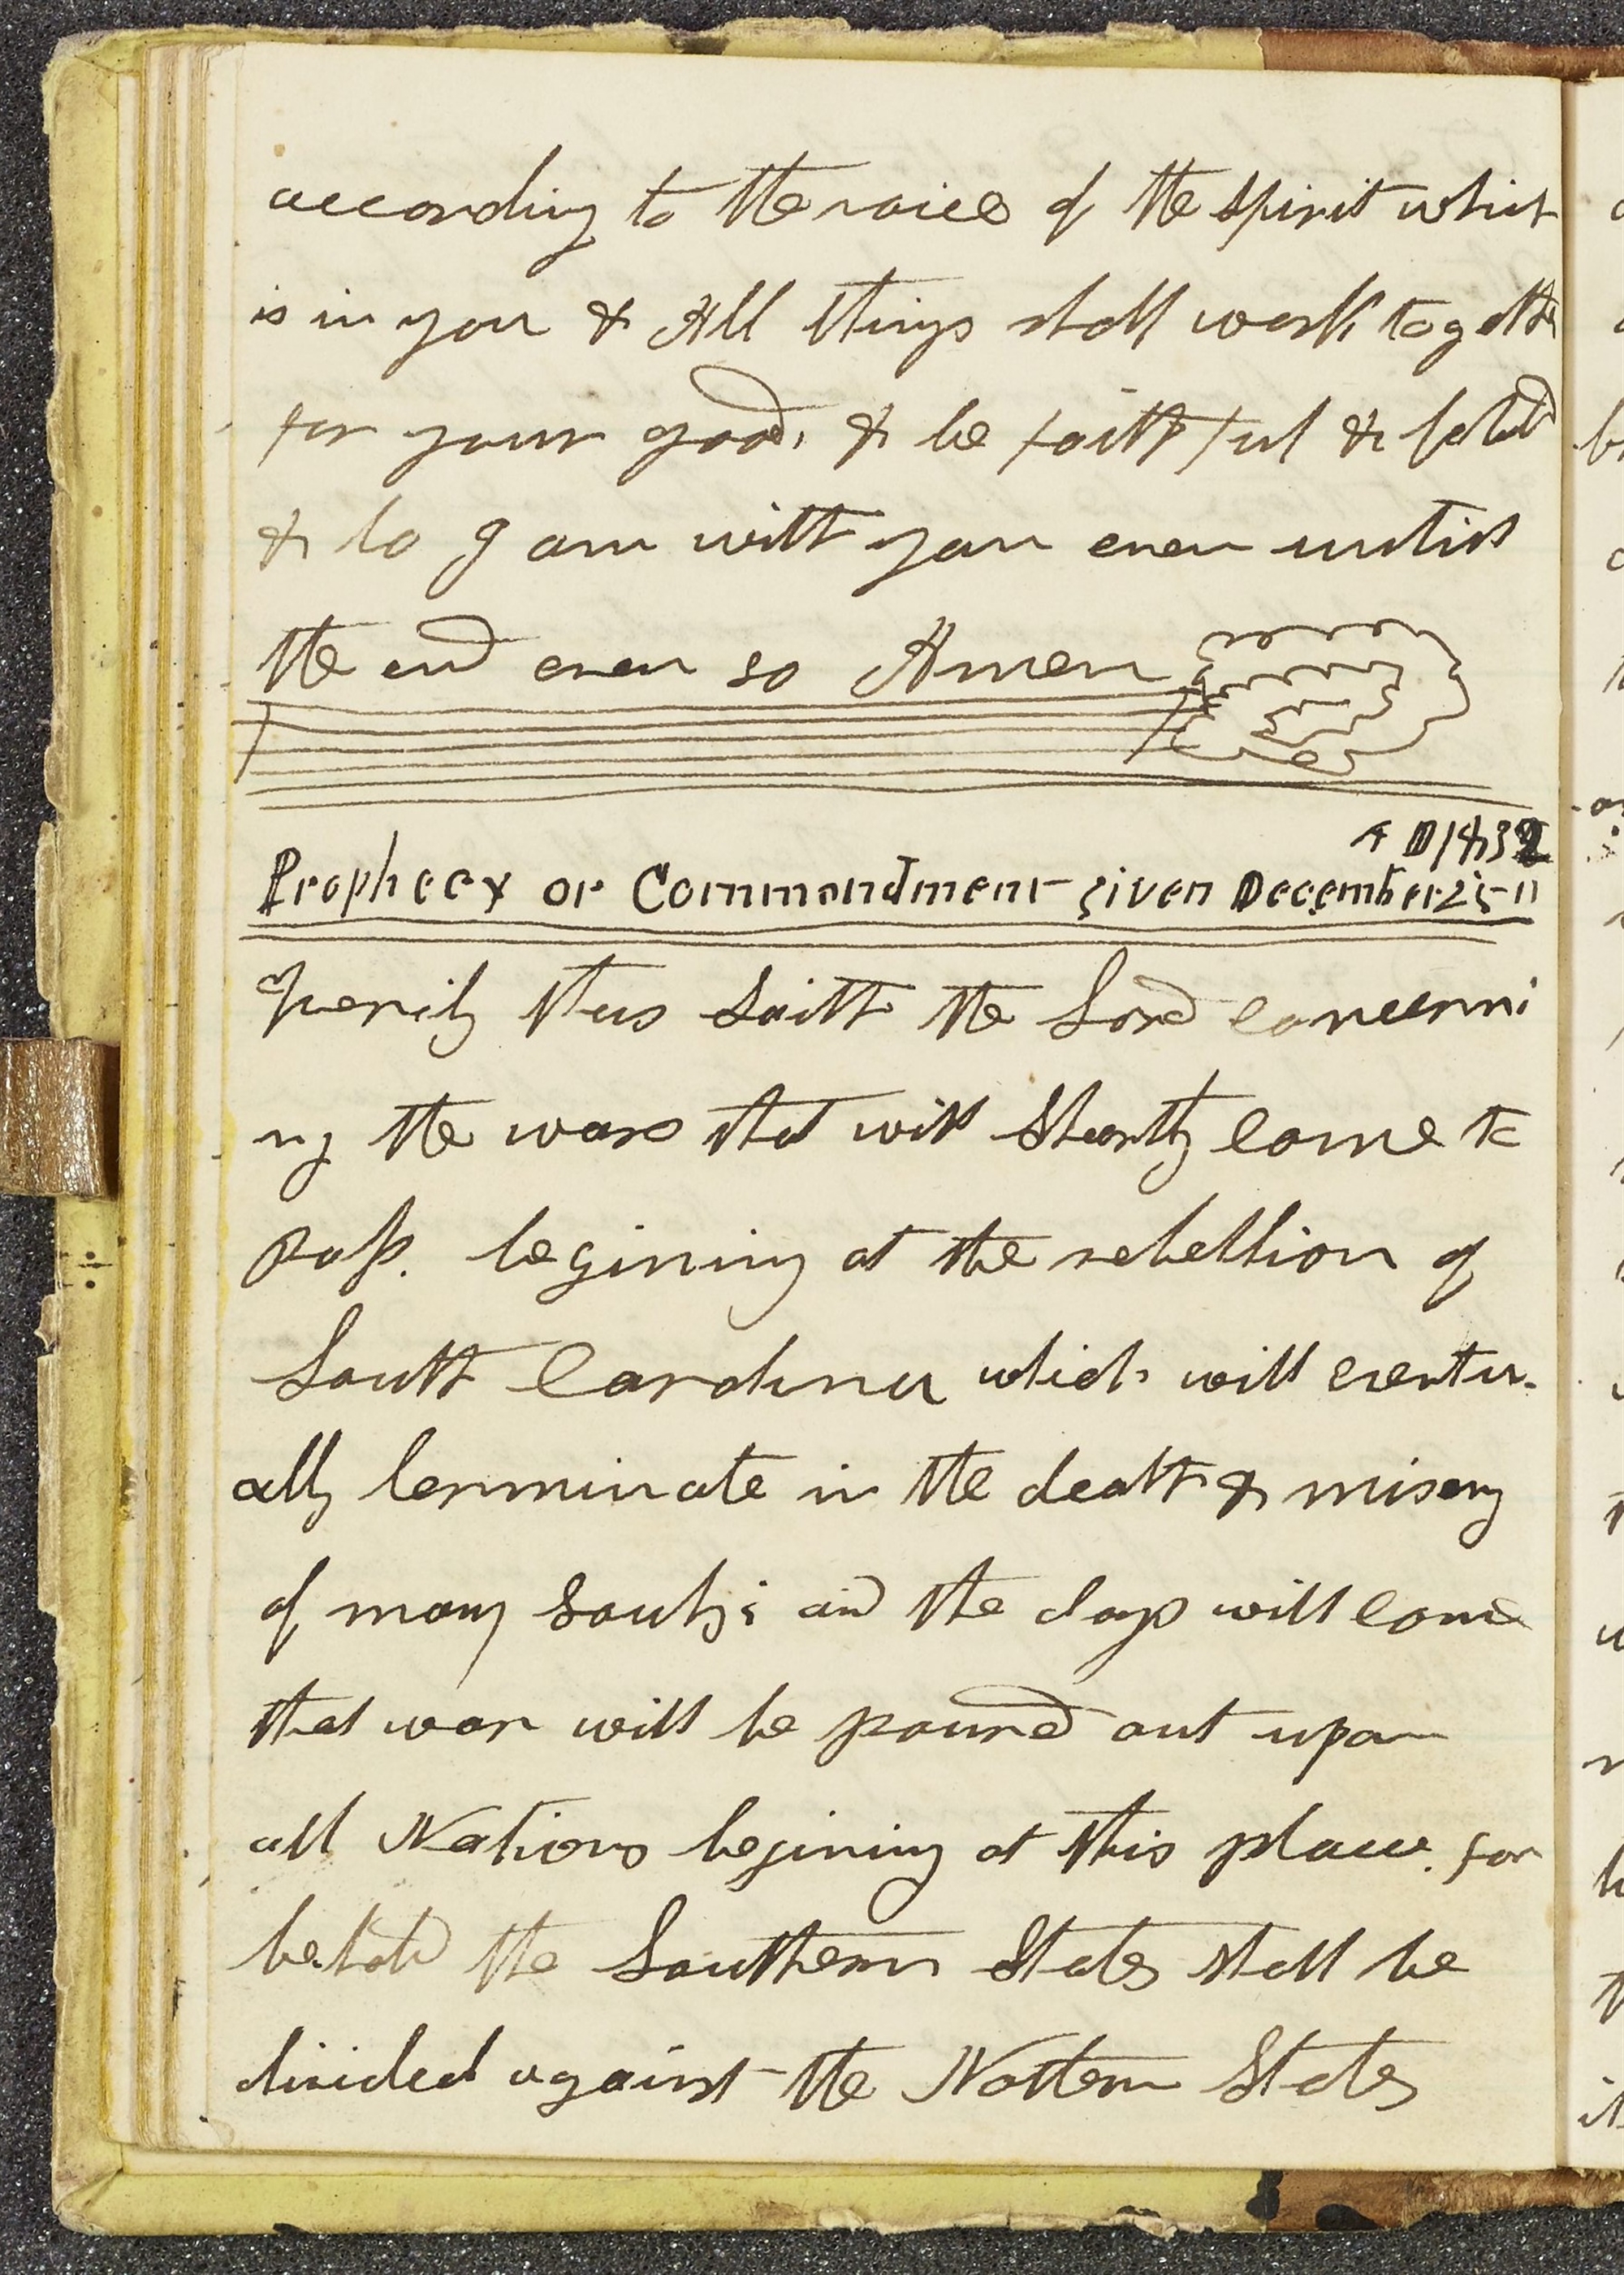 according to the voice of the spirit which
is in you & All things shall work togethe
for your good, & be faithful & behold
& lo I am with you even untill
the end even so Amen
A D 1832
Prophecey or Commandment given December 25th
Verily thus Saith the Lord concerni
ng the wars that will Shortly come to
pass. begining at the rebellion of
South Carolina which will eventu-
ally terminate in the death & misery
of many Souls; and the days will come
that war will be poured out upon
all Nations begining at this place. for
behold the Southern States shall be
divided against the Nothern States